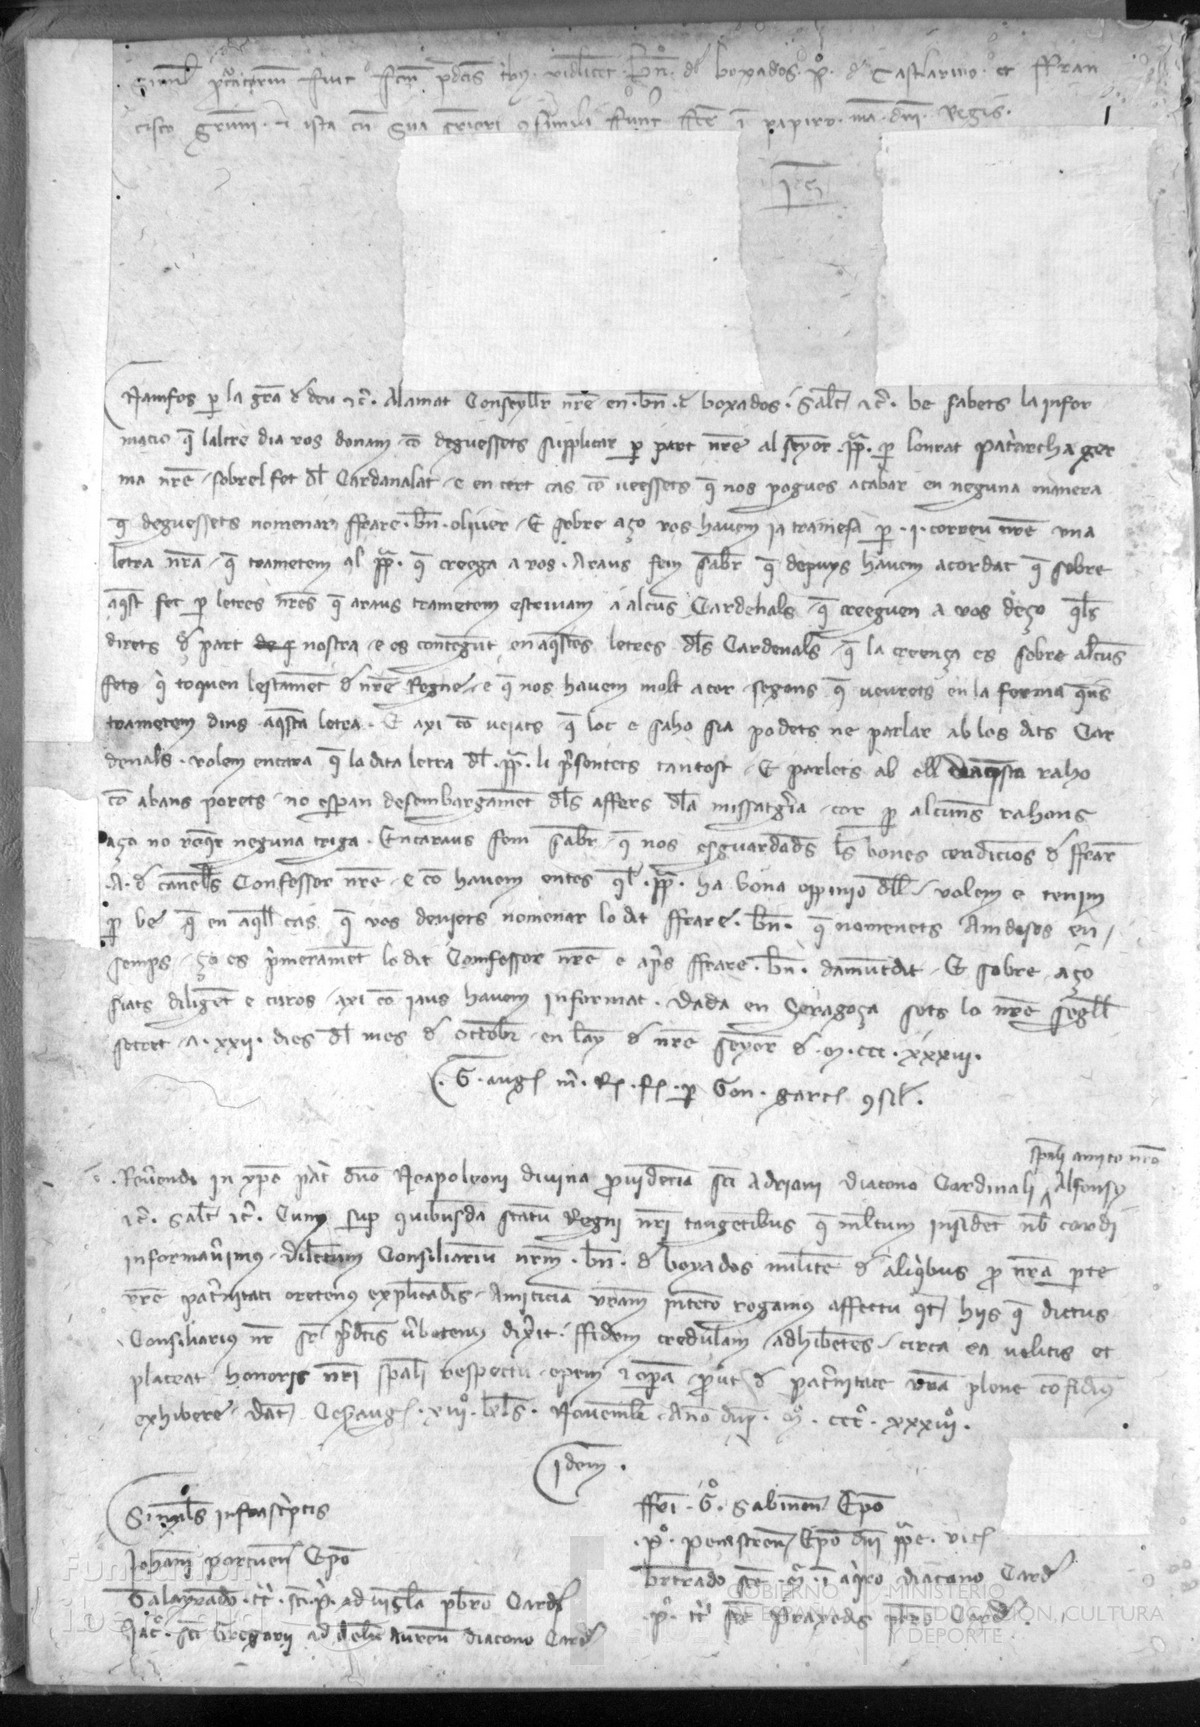 Simil procuratorium fuit fcm pdcis tby videlicet Bn de boxados P. de Castlarino et Ffran
cisco Grunii ista cu sua fuit fce i papiro ma dni Regis
1
Namfos p la gra d deu Alamat Conseyller nre en bn d boxados Salt be sabets la infor
macio q laltre dia vos donam co deguessets supplicar p part nre al seyor ppa p lonrat patriarcha ger
ma nre sobrel fet dl Cardanalat e en cert cas co veessets q nos pogues acabar en neguna manera
q deguessets nomenar ffrare bn oliver E sobre aço vos havem ia tramesa p i correu nre una
letra nra q trametem al ppa q creega a vos Araus fem saber q depuys havem acordat q sobre
aqst fet p letres nres q araus trametem escrivam a alcus Cardenals q creeguen a vos deço qls
direts d part nostra e es contengut en aqstes letres dls Cardenals q la creença es sobre alcus
fets q toquen lestament d nre Regne e q nos havem molt a cor segons q veurets en la forma qus
trametem dins aqsta letra E axi co veiats q loc e saho sia podets ne parlar ab los dits Car
denals volem encara q la dita letra dl ppa li psentets tantost E parlets ab ell daqsta raho
co abans porets no espan desembargament dls affers dla missatgia cor p alcuns rahons
aço no reqr neguna triga Encaraus fem saber q nos esguardads les bones condicios d ffrare
A d canells Confessor nre e co havem entes ql ppa ha bona oppinio dll volem e tenim
p be q en aqll cas q vos deviets nomenar lo dit ffrare bn q nomenets Amdosos en
semps ço es pmerament lo dit Comfessor nre e aps ffrare bn damuntdit E sobre aço
siats diligent e curos axi co iaus havem informat Dada en Çeragoça sots lo nre segell
secret A xxii dies dl mes d Octobr en lany d nre seyor d M ccc xxxiii
G aug p Gon garc
spali amico nro
Reverendo in xpo pat dno Neapoleoni divina providencia sci Adriani diacono Cardinali Alfonsus
Salt Cum sup quibusda statu Regni nri tangetibus q multum insident nb cordi
informaverimus dilectum Consiliarium nrm bn d boxados militem d aliqbus p nra pte
vre patnitati oretenus explicadis Amiciciam vram intento rogamus affectu qt hiis q dictus
Consiliarius nr sr pdcis vbotenus dixit ffidem credulam adhibetes circa ea velitis et
placeat honoris nri spali respectu opem opa prout d patnitate vra plene confidim
exhibere dat Cesaug xiiii kls Novembr Ano dni M ccc xxxiii
Idem
Similes infrascriptis
Johani portuen Epo
Talayrado tt sci p ad vincula pbro Card
Jac sci Georgii ad velu aureu diacono Card
ffri G Sabinen Epo
P penestren Epo dni ppe vic
brtrado sce M i aqiro diacono Card
P tt sce Praxedis pbro Card
Fundación
Ignacio Larramendi
GOBIERNO
DE ESPAÑA
MINISTERIO
DE EDUCACIÓN, CULTURA
Y DEPORTE